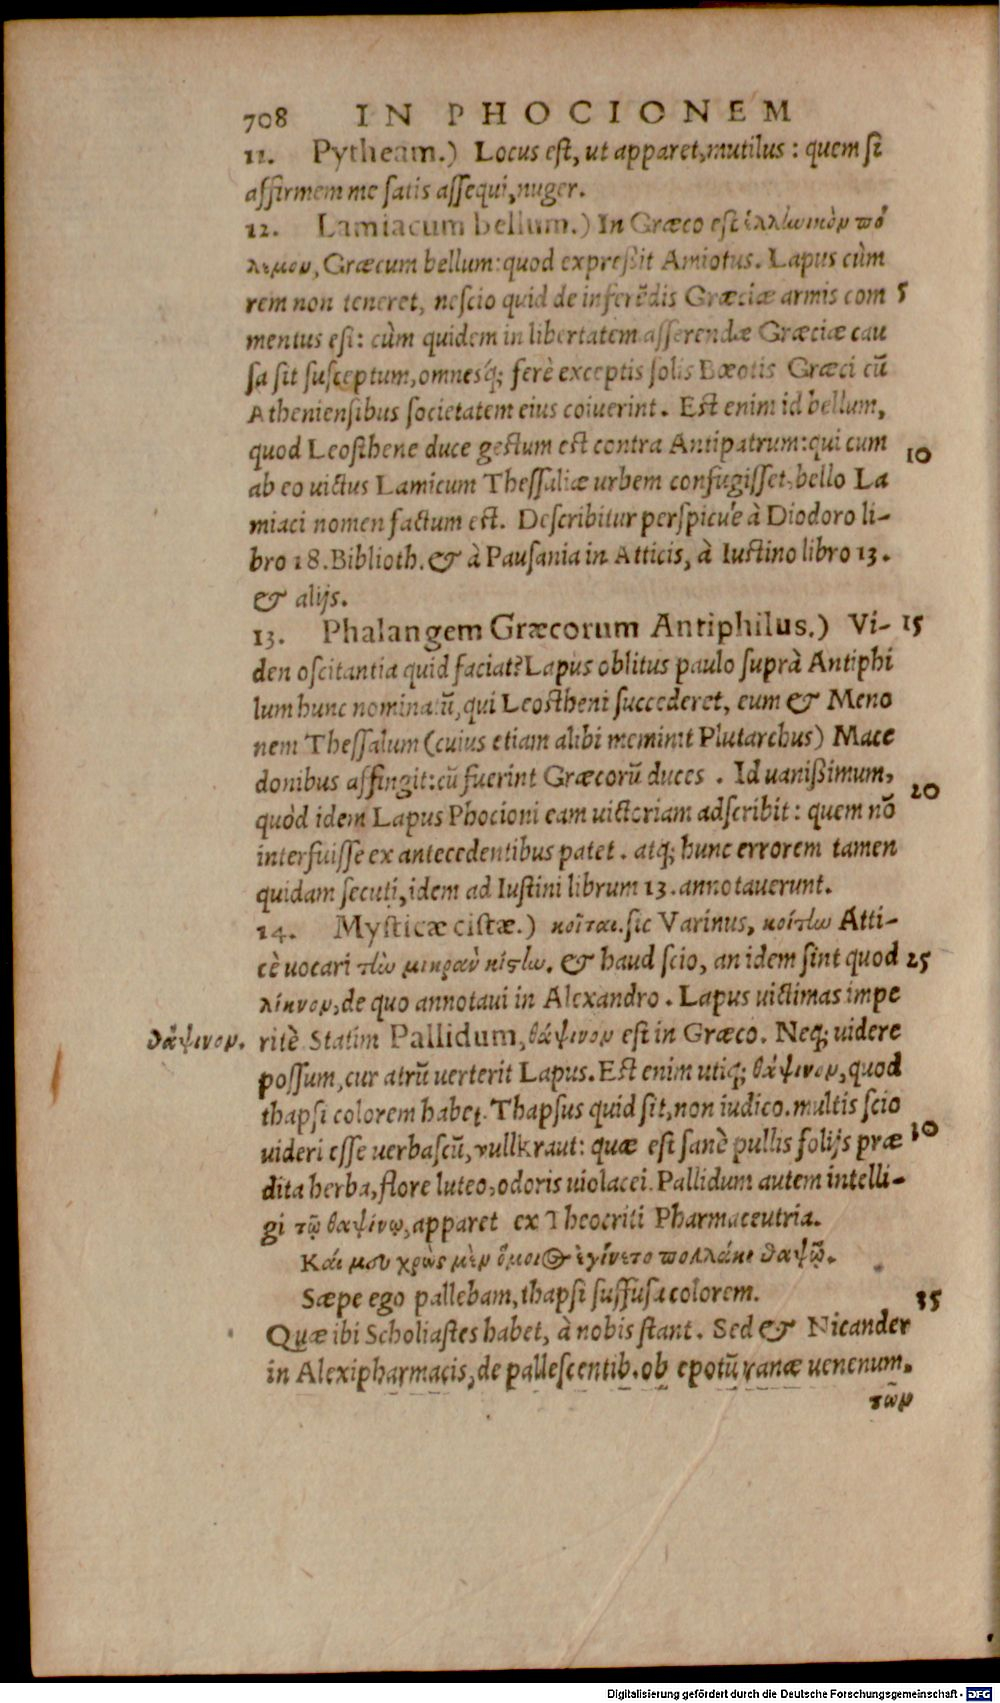 708 IN PHOCIONEM
11. Pytheam.) Locus eſt, ut apparet, mutilus: quem ſi
affirmem me ſatis aſſequi, nuger.
12. Lamiacum bellum.) In Græco eſt ἑλλἰωικὸν πό
λεμον, Græcum bellum: quod expreßit Amiotus. Lapus cùm
rem non teneret, neſcio quid de inferēdis Græciæ armis com 5
mentus eſt: cùm quidem in libertatem aſſerendæ Græciæ cau
ſa ſit ſuſceptum, omnesq́; ferè exceptis ſolis Bœotis Græci cū
Athenienſibus ſocietatem eius coiuerint. Eſt enim id bellum,
quod Leoſthene duce geſtum eſt contra Antipatrum: qui cum 10
ab eo uictus Lamicum Theſſaliæ urbem confugiſſet, bello La
miaci nomen factum eſt. Deſcribitur perſpicuè à Diodoro li-
bro 18. Biblioth. & à Pauſania in Atticis, à Iuſtino libro 13.
& alijs.
13. Phalangem Græcorum Antiphilus.) Vi- 15
den oſcitantia quid faciat? Lapus oblitus paulo ſuprà Antiphi
lum hunc nominatū, qui Leoſtheni ſuccederet, eum & Meno
nem Theſſalum (cuius etiam alibi meminit Plutarchus) Mace
donibus affingit: cū fuerint Græcorū duces. Id uanißimum,
quòd idem Lapus Phocioni eam uictoriam adſcribit: quem nō 20
interfuiſſe ex antecedentibus patet. atq; hunc errorem tamen
quidam ſecuti, idem ad Iuſtini librum 13. annotauerunt.
14. Myſticæ ciſtæ.) κοῖται. ſic Varinus, κοίτἰω Atti-
cè uocari τἰὼ μικρὰν κίστἰω. & haud ſcio, an idem ſint quod 25
λίκνον, de quo annotaui in Alexandro. Lapus uictimas impe
θάψινον. ritè Statim Pallidum, θάψινον eſt in Græco. Neq; uidere
poſſum, cur atrū uerterit Lapus. Eſt enim utiq; θάψινον, quod
thapſi colorem habet. Thapſus quid ſit, non iudico. multis ſcio
uideri eſſe uerbaſcū, vullkraut: quæ eſt ſanè pullis folijs præ 30
dita herba, flore luteo, odoris uiolacei. Pallidum autem intelli-
gi τῷ θαψίνῳ, apparet ex Theocriti Pharmaceutria.
Κάι μου χρὼς μὲν ὅμοιος ἐγίνετο πολλάκι θαψῷ.
Sæpe ego pallebam, thapſi ſuffuſa colorem.
Quæ ibi Scholiaſtes habet, à nobis ſtant. Sed & Nicander 35
in Alexipharmacis, de palleſcentib. ob epotū ranæ uenenum,
τῶν
Digitalisierung gefördert durch die Deutsche Forschungsgemeinschaft - DFG